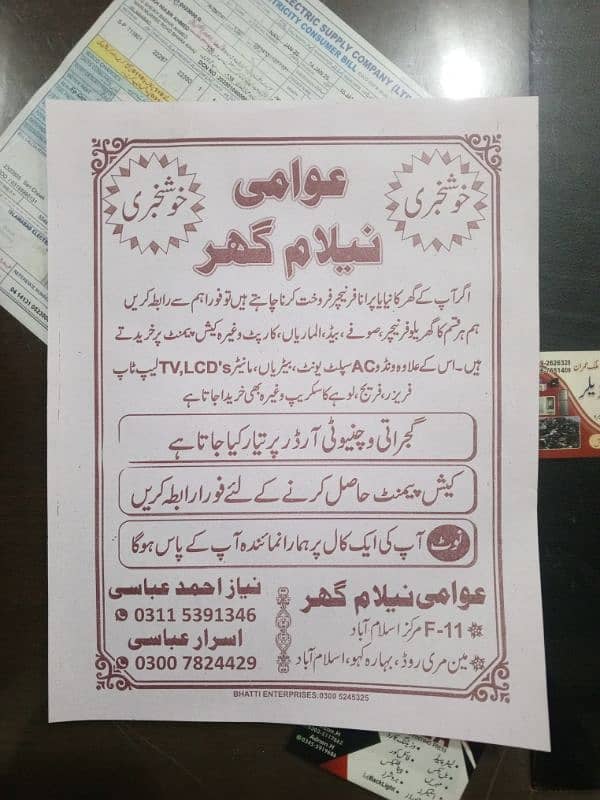 ELECTRIC SUPPLY COMPANY (LTD
ELECTRICITY CONSUMER BILL
خوشخبری
عوامی
نیلام گھر
خوشخبری
اگر آپ کے گھر کا نیا یا پرانا فرنیچر فروخت کرنا چاہتے ہیں تو فوراً ہم سے رابطہ کریں
ہم ہر قسم کا گھریلو فرنیچر، صوفے، بیڈ، الماریاں، کارپٹ وغیرہ کیش پیمنٹ پر خریدتے
ہیں۔ اس کے علاوہ ونڈو AC سپلٹ یونٹ، بیٹریاں، مانیٹر TV,LCD's لیپ ٹاپ
فریزر، فریج، لوہے کا سکریپ وغیرہ بھی خریدا جاتا ہے
گجراتی و چنیوٹی آرڈر پر تیار کیا جاتا ہے
کیش پیمنٹ حاصل کرنے کے لئے فوراً رابطہ کریں
نوٹ آپ کی ایک کال پر ہمارا نمائندہ آپ کے پاس ہوگا
عوامی نیلام گھر
F-11 مرکز اسلام آباد
مین مری روڈ، بہارہ کہو، اسلام آباد
نیاز احمد عباسی
0311 5391346
اسرار عباسی
0300 7824429
BHATTI ENTERPRISES.0300 5245325